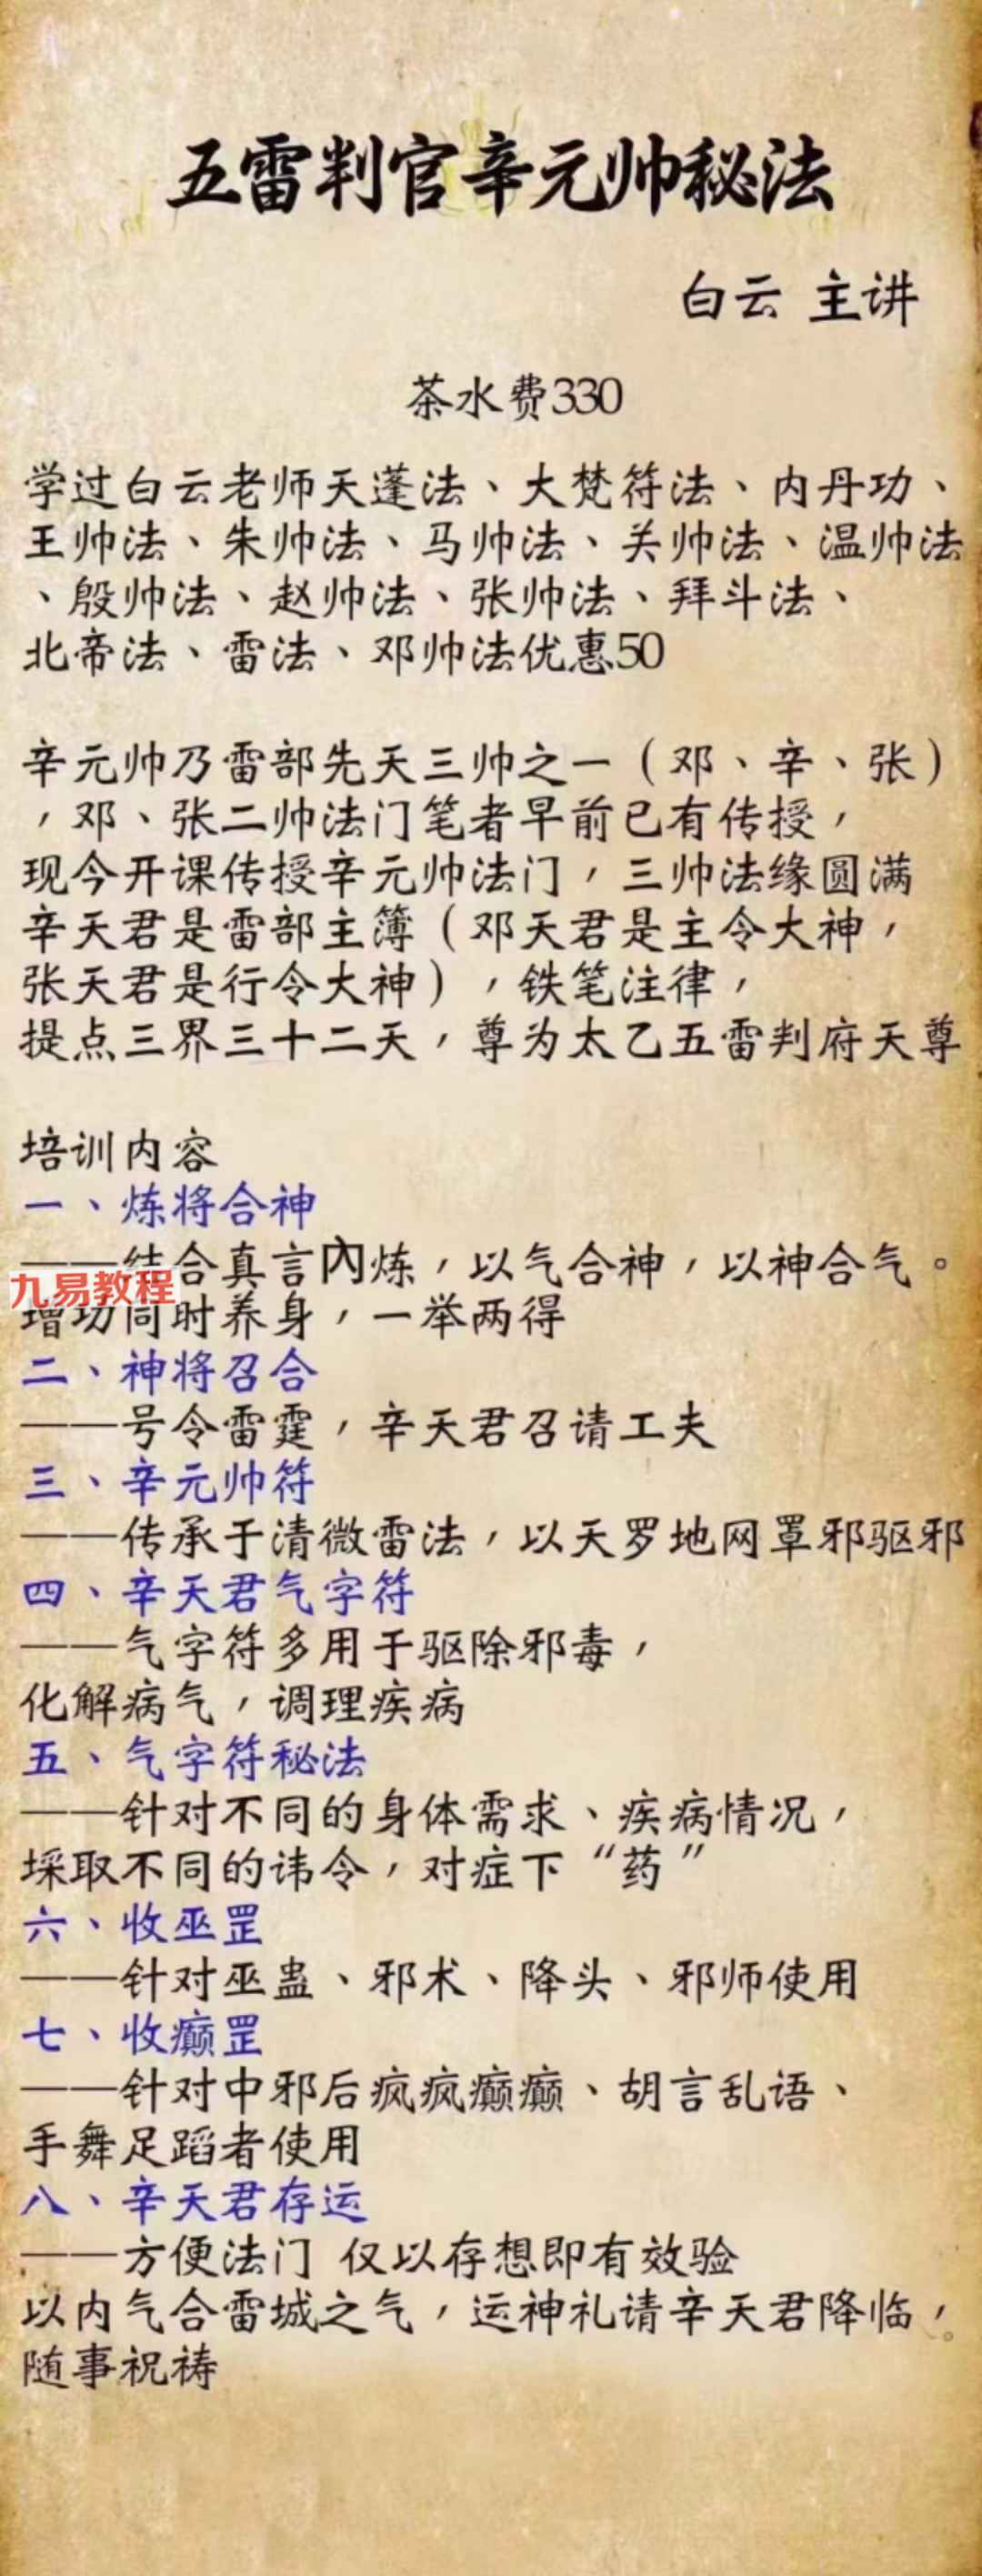 五雷判官辛元帅秘法
白云 主讲
茶水费330
学过白云老师天蓬法、大梵符法、内丹功、
王帅法、朱帅法、马帅法、关帅法、温帅法
、殷帅法、赵帅法、张帅法、拜斗法、
北帝法、雷法、邓帅法优惠50
辛元帅乃雷部先天三帅之一（邓、辛、张）
，邓、张二帅法门笔者早前已有传授，
现今开课传授辛元帅法门，三帅法缘圆满
辛天君是雷部主簿（邓天君是主令大神，
张天君是行令大神），铁笔注律，
提点三界三十二天，尊为太乙五雷判府天尊
培训内容
一、炼将合神
——结合真言内炼，以气合神，以神合气。
九易教程
增功同时养身，一举两得
二、神将召合
——号令雷霆，辛天君召请工夫
三、辛元帅符
——传承于清微雷法，以天罗地网罩邪驱邪
四、辛天君气字符
——气字符多用于驱除邪毒，
化解病气，调理疾病
五、气字符秘法
——针对不同的身体需求、疾病情况，
埰取不同的讳令，对症下“药”
六、收巫罡
——针对巫蛊、邪术、降头、邪师使用
七、收癫罡
——针对中邪后疯疯癫癫、胡言乱语、
手舞足蹈者使用
八、辛天君存运
——方便法门 仅以存想即有效验
以内气合雷城之气，运神礼请辛天君降临，。
随事祝祷